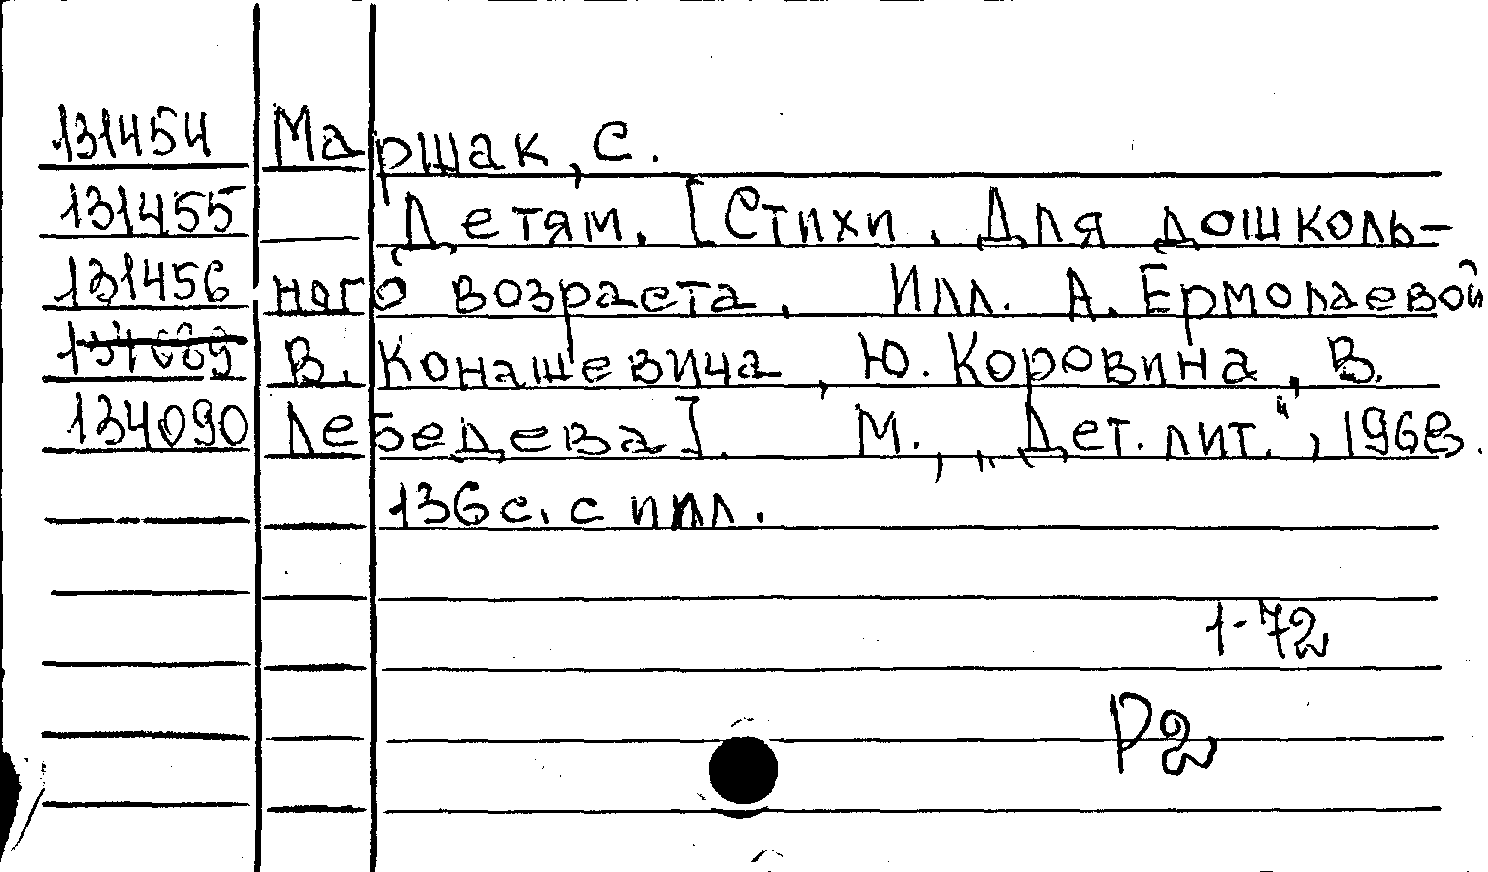 131454 Маршак, С.
131455 Детям. [Стихи. Для дошколь-
131456 ного возраста. Илл. А. Ермолаевой
В. Конашевича, Ю. Коровина, В.
134090 Лебедева]. М., „Дет. лит.", 1968.
136 с. с илл.
1-72
Р2